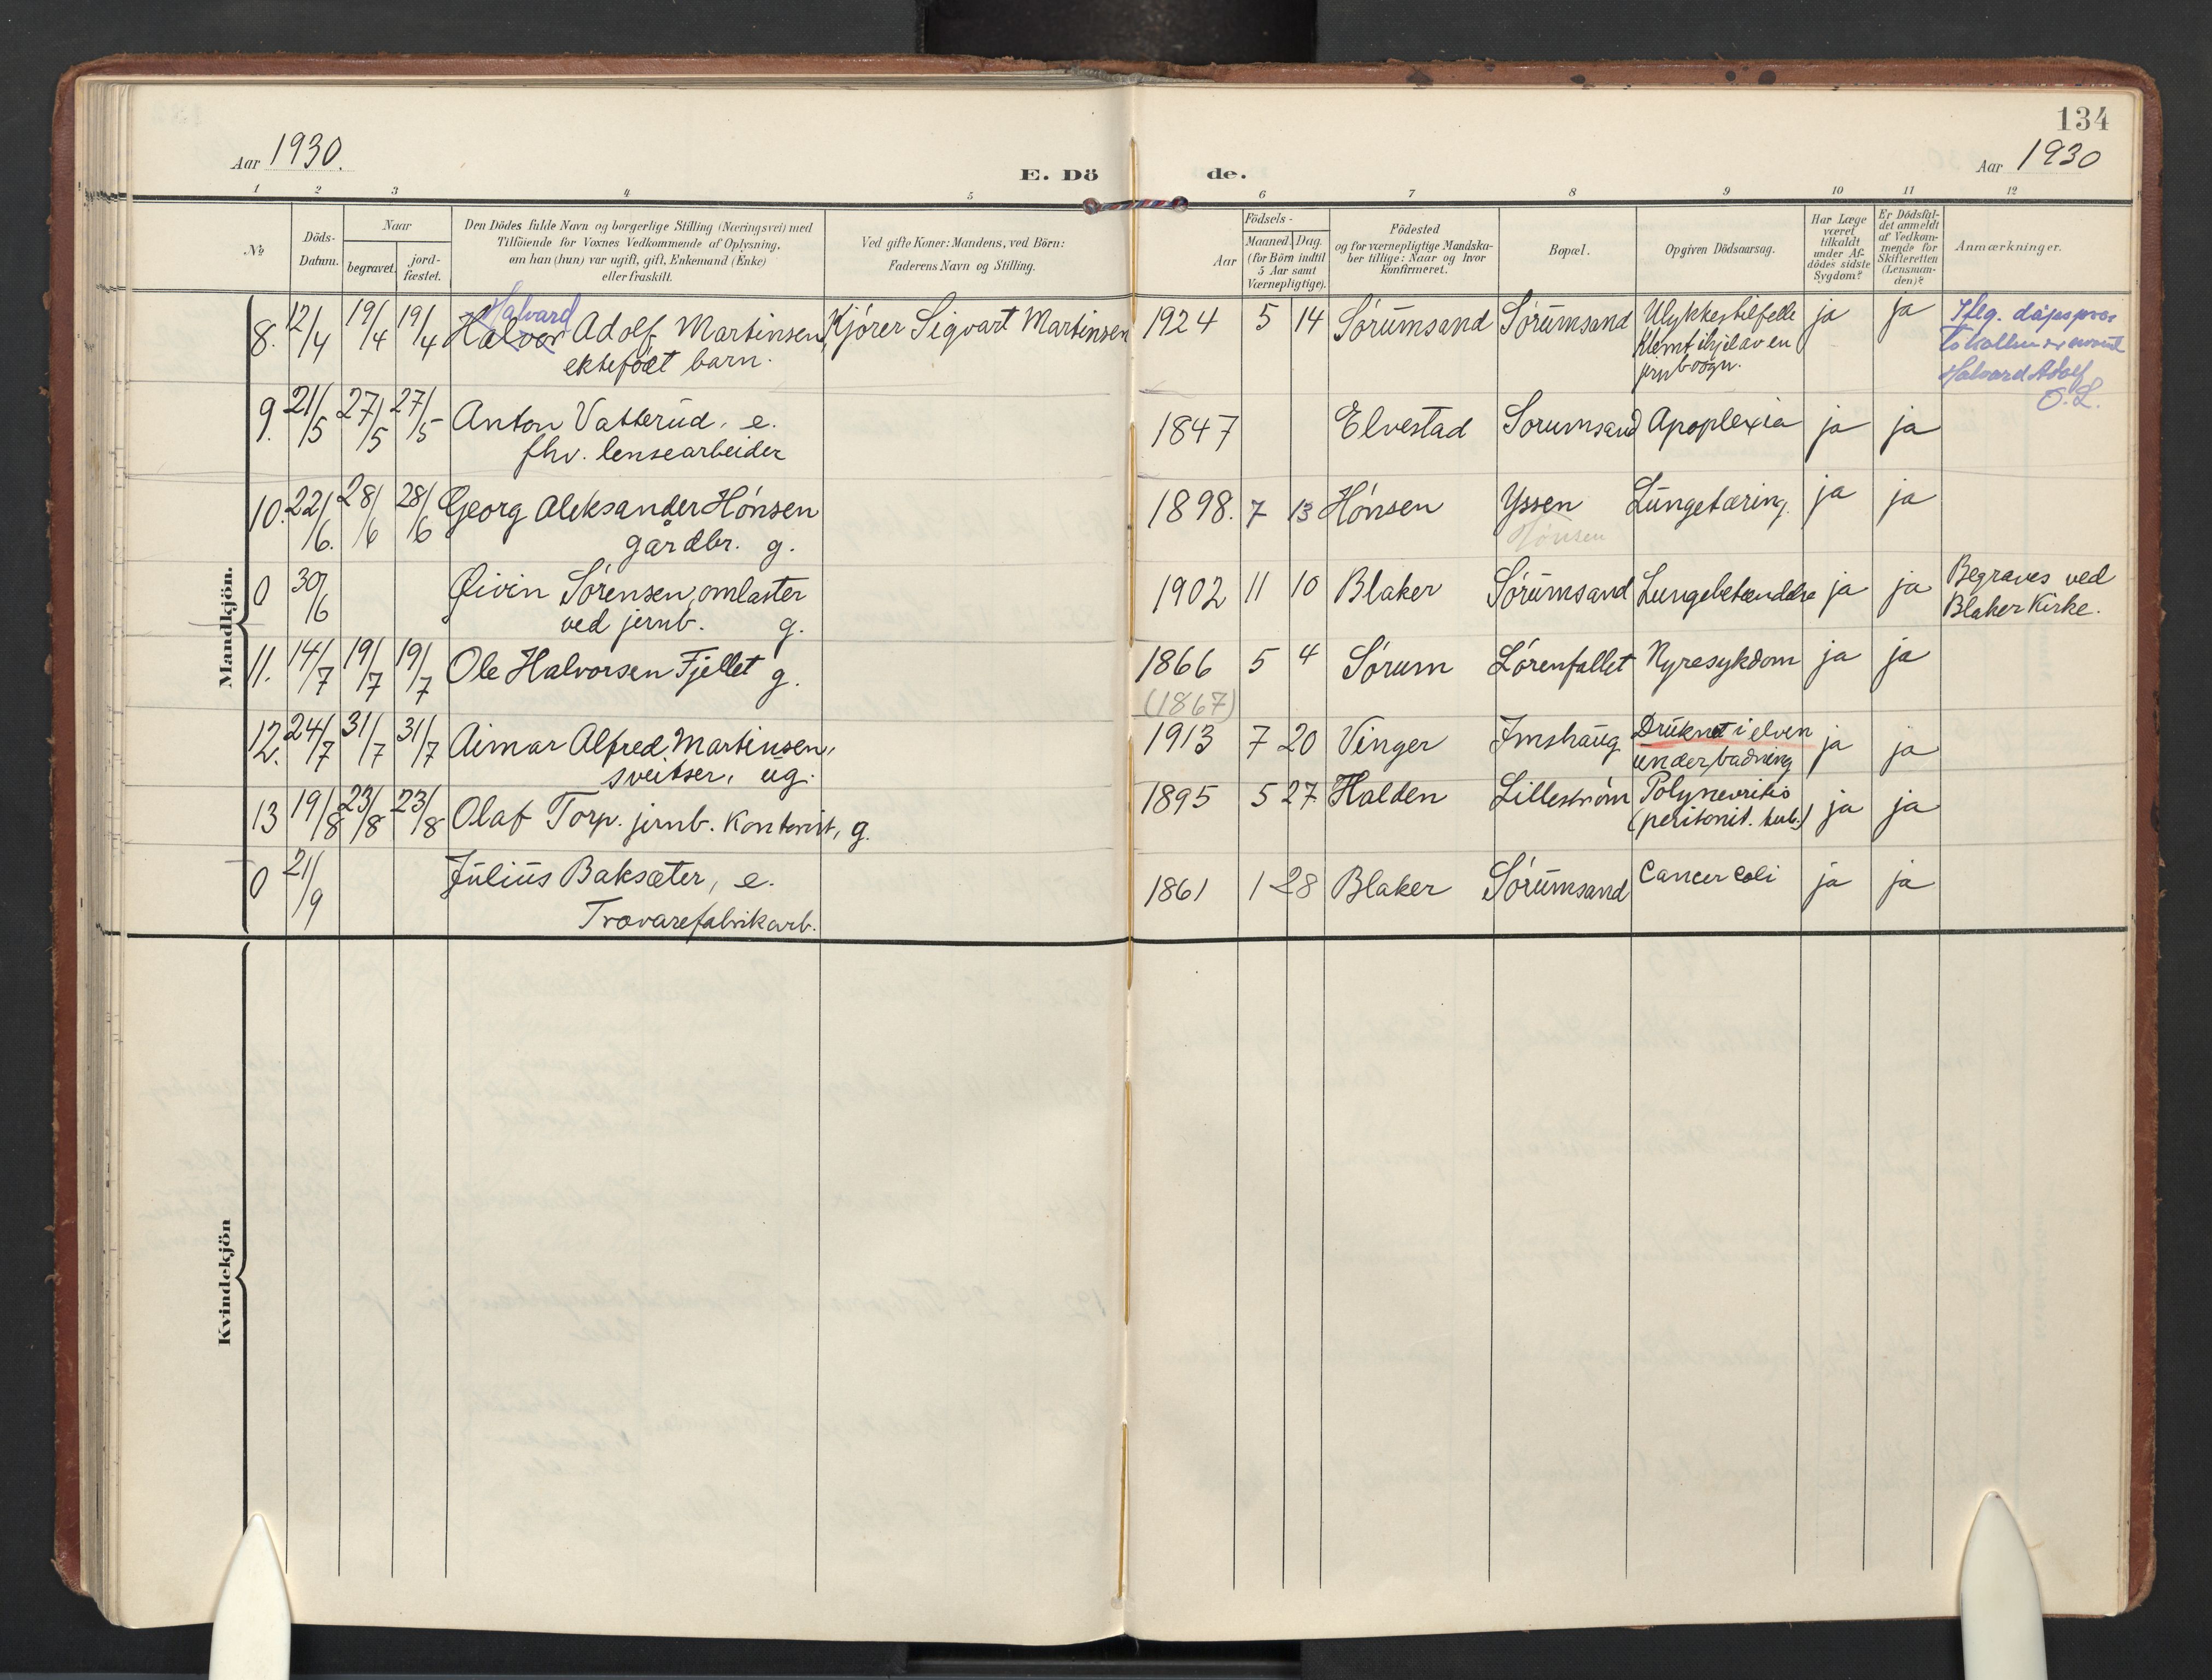 134
Aar 1930.
E. Dö de.
Aar 1930
1 2 3 4 5 6 7 8 9 10 11 12
No
Döds-
Datum.
Naar
begravet.
jord-
fæstet.
Den Dödes fulde Navn og borgerlige Stilling (Næringsvei) med
Tilföiende for Voxnes Vedkommende af Oplysning,
om han (hun) var ugift, gift, Enkemand (Enke)
eller fraskilt.
Ved gifte Koner: Mandens, ved Börn:
Faderens Navn og Stilling.
Födsels-
Aar
Maaned. Dag.
(for Börn indtil
5 Aar samt
Værnepligtige).
Födested
og for værnepligtige Mandska-
ber tillige: Naar og hvor
Konfirmeret.
Bopæl.
Opgiven Dödsaarsag.
Har Læge
været
tilkaldt
under Af-
dödes sidste
Sygdom?
Er Dödsfal-
det anmeldt
af Vedkom-
mende for
Skifteretten
(Lensman-
den)?
Anmærkninger.
Mandkjön.
Halvard
8. 12/4 19/4 19/4 Halvor Adolf Martinsen, Kjörer Sigvart Martinsen 1924 5 14 Sörumsand Sörumsand Ulykkestilfelle ja ja Iflg. dåpspro-
ektefödt barn. Klemt ihjel av en
jernbvogn.
Halvard Adolf
O. L.
9. 21/5 27/5 27/5 Anton Vatterud, e. 1847 Elvestad Sorumsand Apoplexia ja ja
fhv. lensearbeider
10. 22/6. 28/6 28/6 Georg Aleksander Hönsen 1898. 7 13 Hönsen Yssen Lungetæring. ja ja
gårdbr. g. Hönsen
0 30/6 Öivin Sörensen, omlaster 1902 11 10 Blaker Sörumsand Lungebetændelse ja ja Begraves ved
ved jernb. g. Blaker Kirke.
11. 14/7 19/7 19/7 Ole Halvorsen Fjellet g. 1866 5 4 Sörum Lörenfallet Nyresykdom ja ja
(1867)
12. 24/7 31/7 31/7 Aimar Alfred Martinsen, 1913 7 20 Vinger Imshaug Druknet i elven ja ja
sveitser, ug. under badning
13 19/8 23/8 23/8 Olaf Torp. jernb. kontorist, g. 1895 5 27 Halden Lilleström Polynevritis ja ja
(peritonit. tub.)
0 21/9 Julius Baksæter, e. 1861 1 28 Blaker Sörumsand Cancer coli ja ja
Trævarefabrikarb.
Kvindekjön